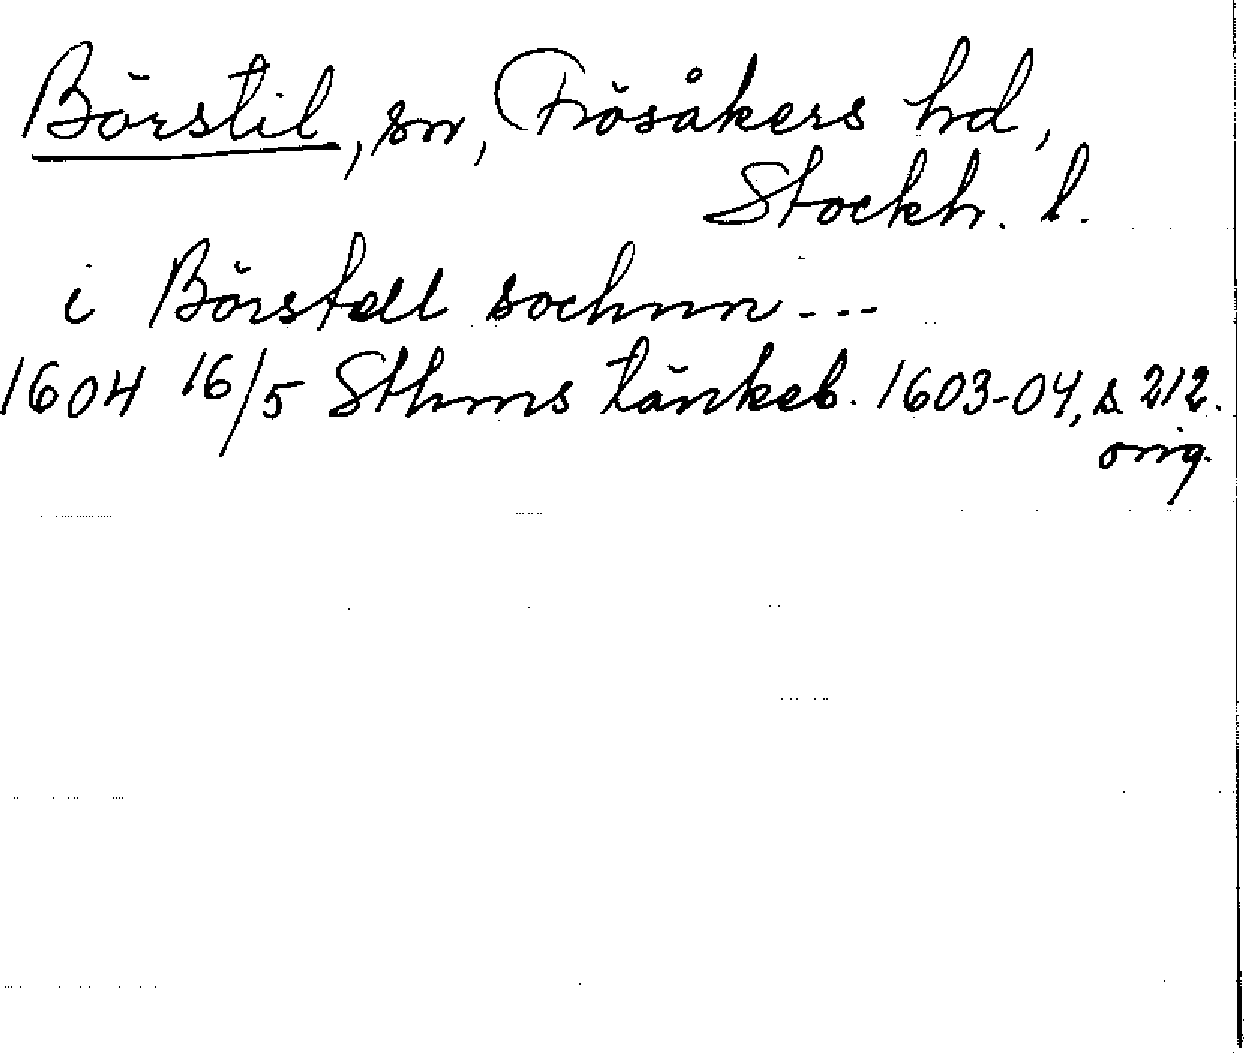 Börstil, sn, Frösåkers hd,
Stockh. l.
i Börstell sochnn ---
1604 16/5 Sthms tänkeb. 1603-04, s 212.
orig.